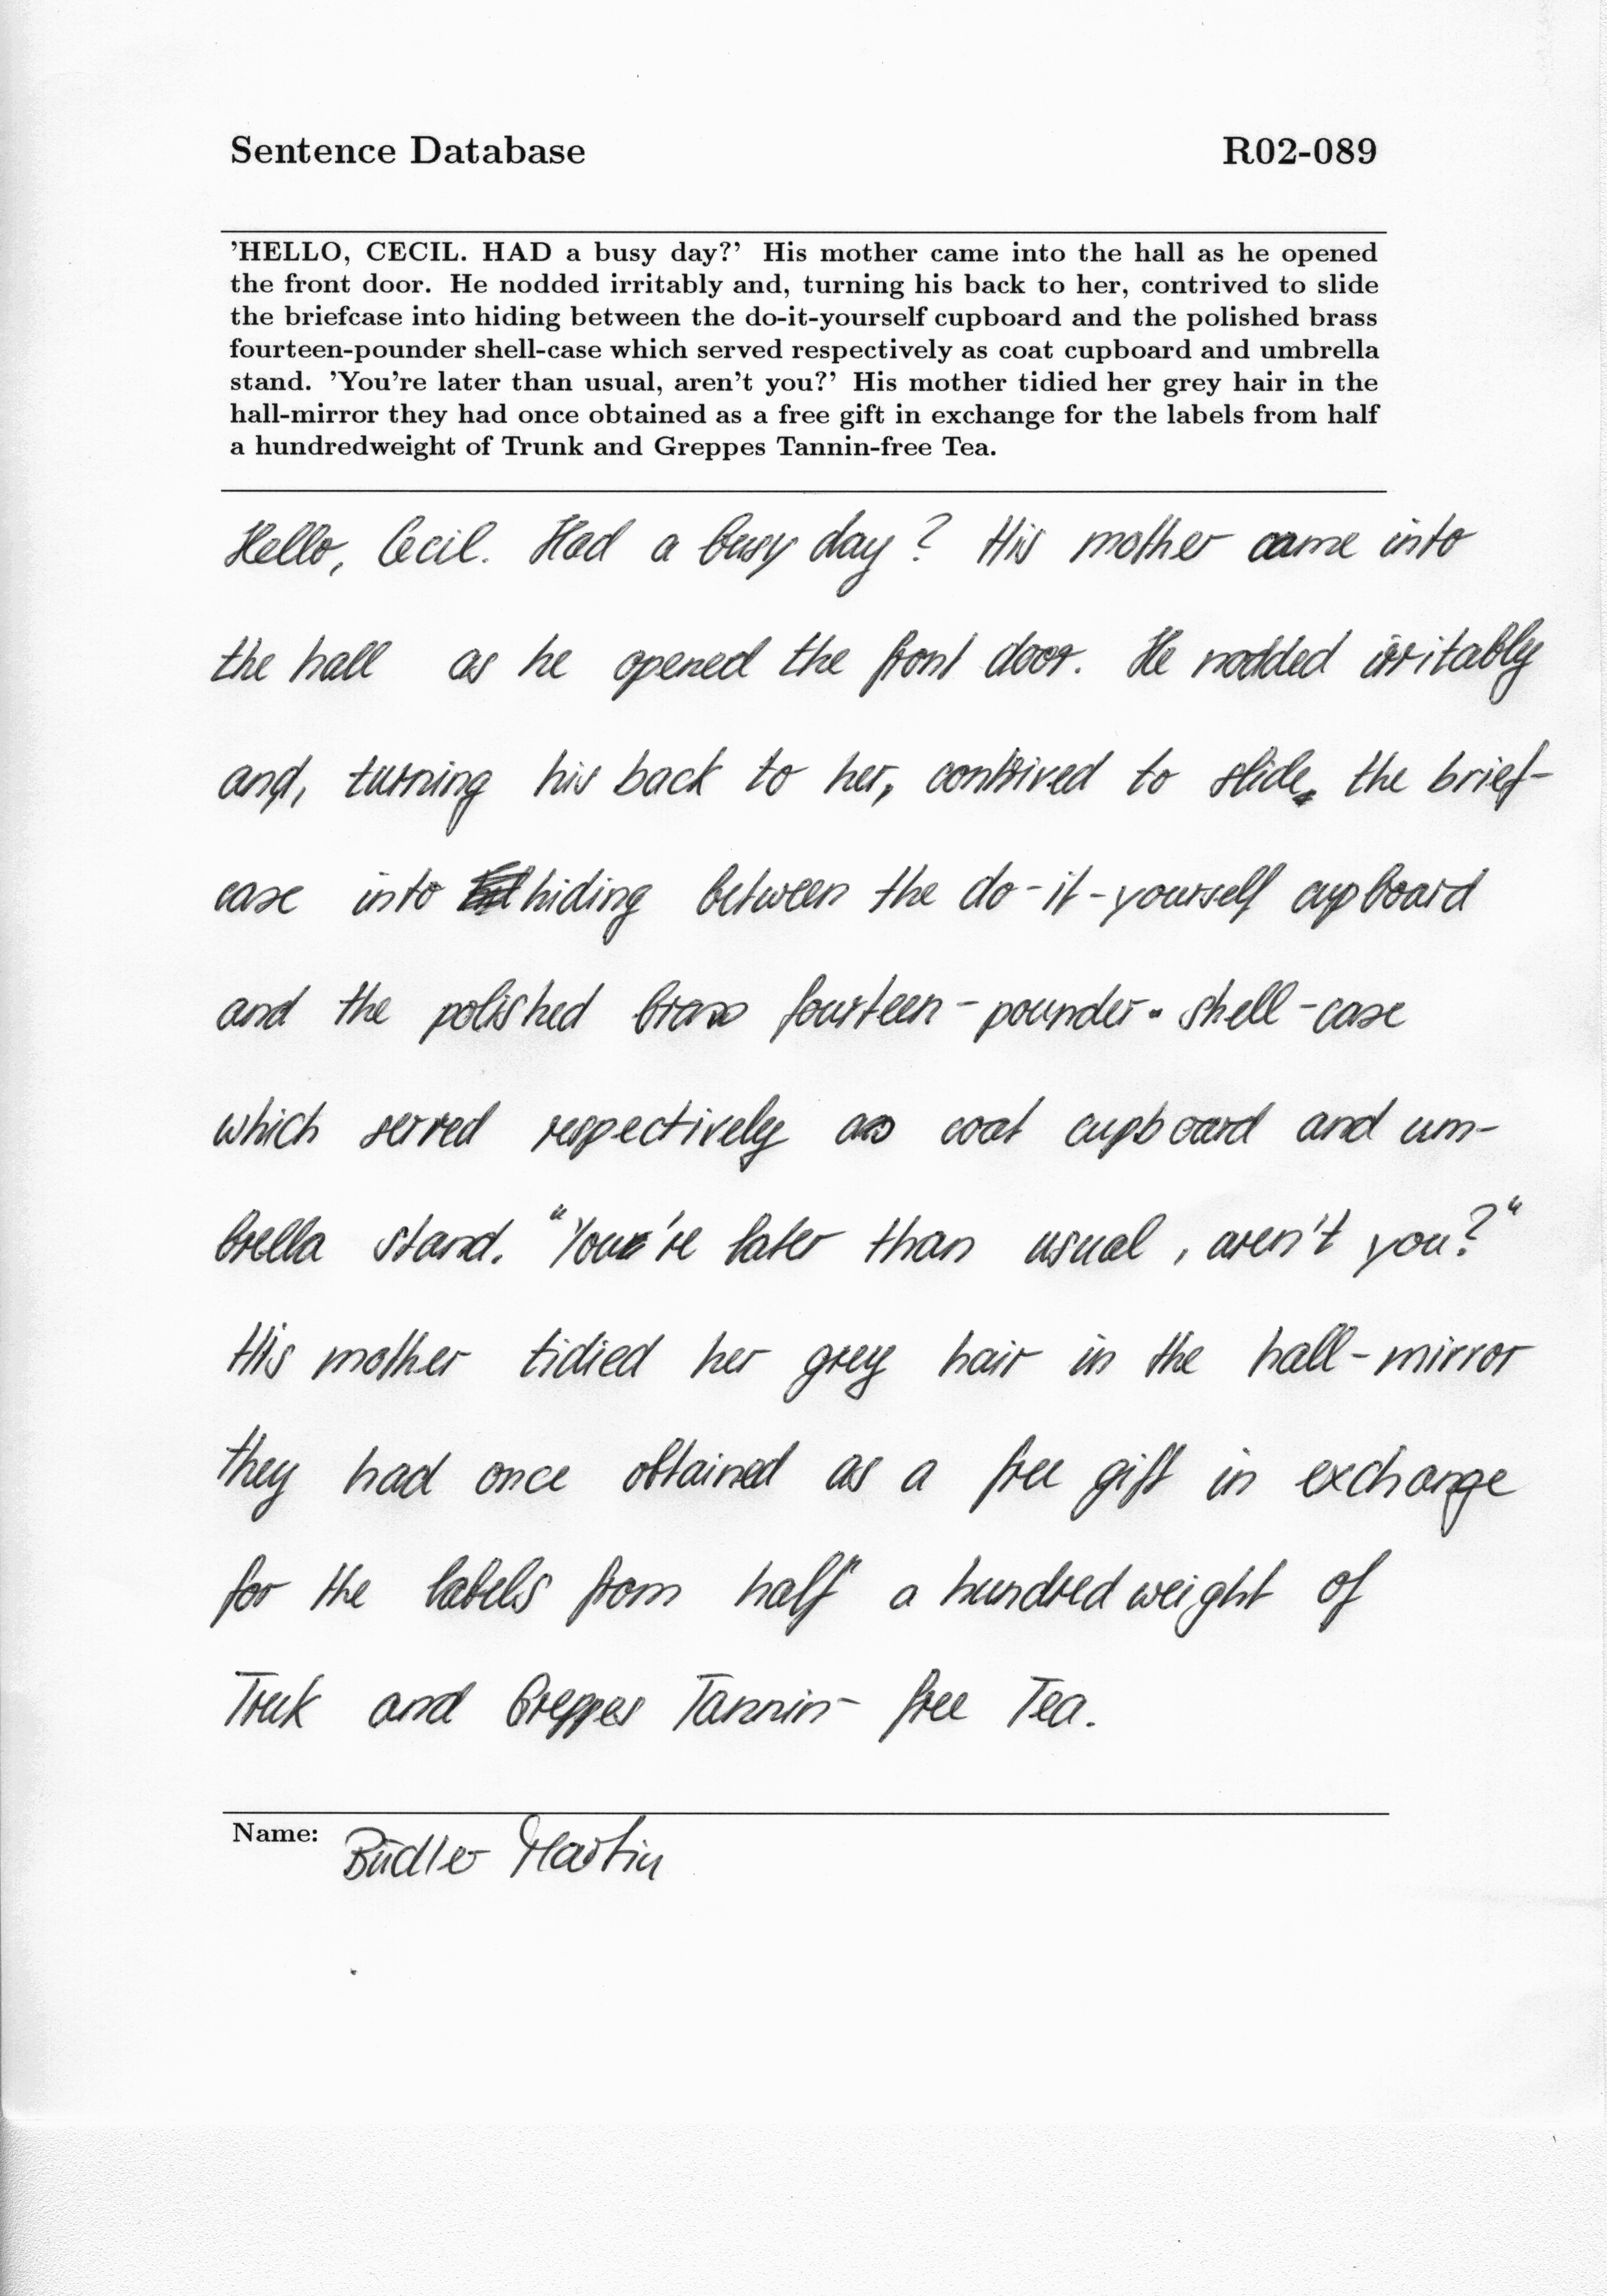 Sentence Database R02-089
'HELLO, CECIL. HAD a busy day?' His mother came into the hall as he opened
the front door. He nodded irritably and, turning his back to her, contrived to slide
the briefcase into hiding between the do-it-yourself cupboard and the polished brass
fourteen-pounder shell-case which served respectively as coat cupboard and umbrella
stand. 'You're later than usual, aren't you?' His mother tidied her grey hair in the
hall-mirror they had once obtained as a free gift in exchange for the labels from half
a hundredweight of Trunk and Greppes Tannin-free Tea.
Hello, Cecil. Had a busy day? His mother came into
the hall as he opened the front door. He nodded irritably
and, turning his back to her, contrived to slide the brief-
case into hiding between the do-it-yourself cupboard
and the polished brass fourteen-pounder shell-case
which served respectively as coat cupboard and um-
brella stand. "You're later than usual, aren't you?"
His mother tidied her grey hair in the hall-mirror
they had once obtained as a free gift in exchange
for the labels from half a hundredweight of
Truk and Greppes Tannin-free Tea.
Name: Büdler Martin